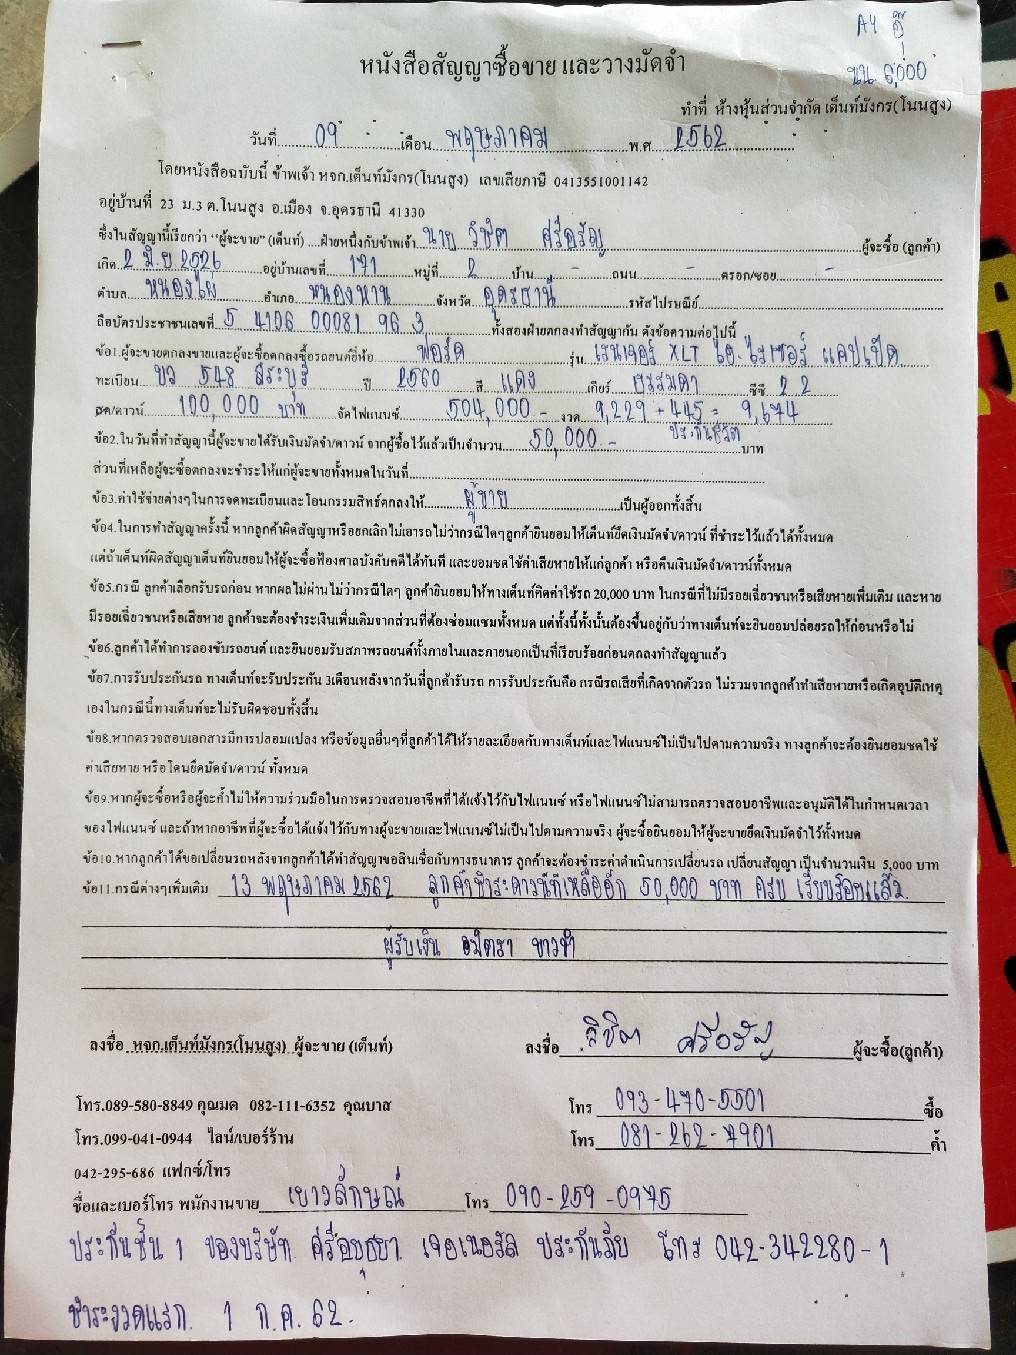 A4 อุ๊
นน. 6,000
หนังสือสัญญาซื้อขาย และวางมัดจำ
ทำที่ ห้างหุ้นส่วนจำกัด เต็นท์มังกร(โนนสูง)
วันที่......09......เดือน...พฤษภาคม...พ.ศ...2562...
โดยหนังสือฉบับนี้ ข้าพเจ้า หจก.เต็นท์มังกร(โนนสูง) เลขเสียภาษี 0413551001142
อยู่บ้านที่ 23 ม.3 ต.โนนสูง อ.เมือง จ.อุดรธานี 41330
ซึ่งในสัญญานี้เรียกว่า "ผู้จะขาย" (เต็นท์) ....ฝ่ายหนึ่งกับข้าพเจ้า..นาย วิชิต ศรีอรัญ...ผู้จะซื้อ (ลูกค้า)
เกิด 2 มิ.ย 2526 อยู่บ้านเลขที่...171...หมู่ที่...2...บ้าน...-...ถนน...-...ตรอก/ซอย...-
ตำบล...หนองไผ่...อำเภอ...หนองหาน...จังหวัด...อุดรธานี...รหัสไปรษณีย์...
ถือบัตรประชาชนเลขที่..5 4106 00081 96 3...ทั้งสองฝ่ายตกลงทำสัญญากัน ดังข้อความต่อไปนี้
ข้อ1.ผู้จะขายตกลงขายและผู้จะซื้อตกลงซื้อรถยนต์ยี่ห้อ...ฟอร์ด...รุ่น...เรนเจอร์ XLT ไฮ-ไรเซอร์ แคปเปิด
ทะเบียน บว 548 สระบุรี ปี 2560 สี แดง เกียร์ ธรรมดา ซีซี 2.2
สด/ดาวน์ 100,000 บาท จัดไฟแนนซ์ 504,000.- งวด 9,229 + 445 = 9,674
ประกันชีวิต
ข้อ2.ในวันที่ทำสัญญานี้ผู้จะขายได้รับเงินมัดจำ/ดาวน์ จากผู้ซื้อไว้แล้วเป็นจำนวน...50,000.-...บาท
ส่วนที่เหลือผู้จะซื้อตกลงจะชำระให้แก่ผู้จะขายทั้งหมดในวันที่...
ข้อ3.ค่าใช้จ่ายต่างๆในการจดทะเบียนและโอนกรรมสิทธ์ตกลงให้...ผู้ขาย...เป็นผู้ออกทั้งสิ้น
ข้อ4.ในการทำสัญญาครั้งนี้ หากลูกค้าผิดสัญญาหรือยกเลิกไม่เอารถไม่ว่ากรณีใดๆลูกค้ายินยอมให้เต็นท์ยึดเงินมัดจำ/ดาวน์ ที่ชำระไว้แล้วได้ทั้งหมด
แต่ถ้าเต็นท์ผิดสัญญาเต็นท์ยินยอมให้ผู้จะซื้อฟ้องศาลบังคับคดีได้ทันที และยอมชดใช้ค่าเสียหายให้แก่ลูกค้า หรือคืนเงินมัดจำ/ดาวน์ทั้งหมด
ข้อ5.กรณี ลูกค้าเลือกรับรถก่อน หากผลไม่ผ่านไม่ว่ากรณีใดๆ ลูกค้ายินยอมให้ทางเต็นท์คิดค่าใช้รถ 20,000 บาท ในกรณีที่ไม่มีรอยเฉี่ยวชนหรือเสียหายเพิ่มเติม และหาย
มีรอยเฉี่ยวชนหรือเสียหาย ลูกค้าจะต้องชำระเงินเพิ่มเติมจากส่วนที่ต้องซ่อมแซมทั้งหมด แต่ทั้งนี้ทั้งนั้นต้องขึ้นอยู่กับว่าทางเต็นท์จะยินยอมปล่อยรถให้ก่อนหรือไม่
ข้อ6.ลูกค้าได้ทำการลองขับรถยนต์ และยินยอมรับสภาพรถยนต์ทั้งภายในและภายนอกเป็นที่เรียบร้อยก่อนตกลงทำสัญญาแล้ว
ข้อ7.การรับประกันรถ ทางเต็นท์จะรับประกัน 3เดือนหลังจากวันที่ลูกค้ารับรถ การรับประกันคือ กรณีรถเสียที่เกิดจากตัวรถ ไม่รวมจากลูกค้าทำเสียหายหรือเกิดอุบัติเหตุ
เองในกรณีนี้ทางเต็นท์จะไม่รับผิดชอบทั้งสิ้น
ข้อ8.หากตรวจสอบเอกสารมีการปลอมแปลง หรือข้อมูลอื่นๆที่ลูกค้าได้ให้รายละเอียดกับทางเต็นท์และไฟแนนซ์ไม่เป็นไปตามความจริง ทางลูกค้าจะต้องยินยอมชดใช้
ค่าเสียหาย หรือโดนยึดมัดจำ/ดาวน์ ทั้งหมด
ข้อ9.หากผู้จะซื้อหรือผู้จะค้ำไม่ให้ความร่วมมือในการตรวจสอบอาชีพที่ได้แจ้งไว้กับไฟแนนซ์ หรือไฟแนนซ์ไม่สามารถตรวจสอบอาชีพและอนุมัติได้ในกำหนดเวลา
ของไฟแนนซ์ และถ้าหากอาชีพที่ผู้จะซื้อได้แจ้งไว้กับทางผู้จะขายและไฟแนนซ์ไม่เป็นไปตามความจริง ผู้จะซื้อยินยอมให้ผู้จะขายยึดเงินมัดจำไว้ทั้งหมด
ข้อ10.หากลูกค้าได้ขอเปลี่ยนรถหลังจากลูกค้าได้ทำสัญญาขอสินเชื่อกับทางธนาคาร ลูกค้าจะต้องชำระค่าดำเนินการเปลี่ยนรถ เปลี่ยนสัญญา เป็นจำนวนเงิน 5,000 บาท
ข้อ11.กรณีต่างๆเพิ่มเติม 13 พฤษภาคม 2562 ลูกค้าชำระดาวน์ที่เหลืออีก 50,000 บาท ครบ เรียบร้อยแล้ว
ผู้รับเงิน
ลงชื่อ หจก.เต็นท์มังกร(โนนสูง) ผู้จะขาย (เต็นท์) ลงชื่อ วิชิต ศรีอรัญ ผู้จะซื้อ(ลูกค้า)
โทร.089-580-8849 คุณมด 082-111-6352 คุณบาส โทร 093-470-5501 ซื้อ
โทร.099-041-0944 ไลน์/เบอร์ร้าน โทร 081-262-7901 ค้ำ
042-295-686 แฟกซ์/โทร
ชื่อและเบอร์โทร พนักงานขาย เยาวลักษณ์ โทร 090-259-0975
ประกันชั้น 1 ของบริษัท ศรีอยุธยา เจอเนอรัล ประกันภัย โทร 042-342280-1
ชำระงวดแรก 1 ก.ค. 62.